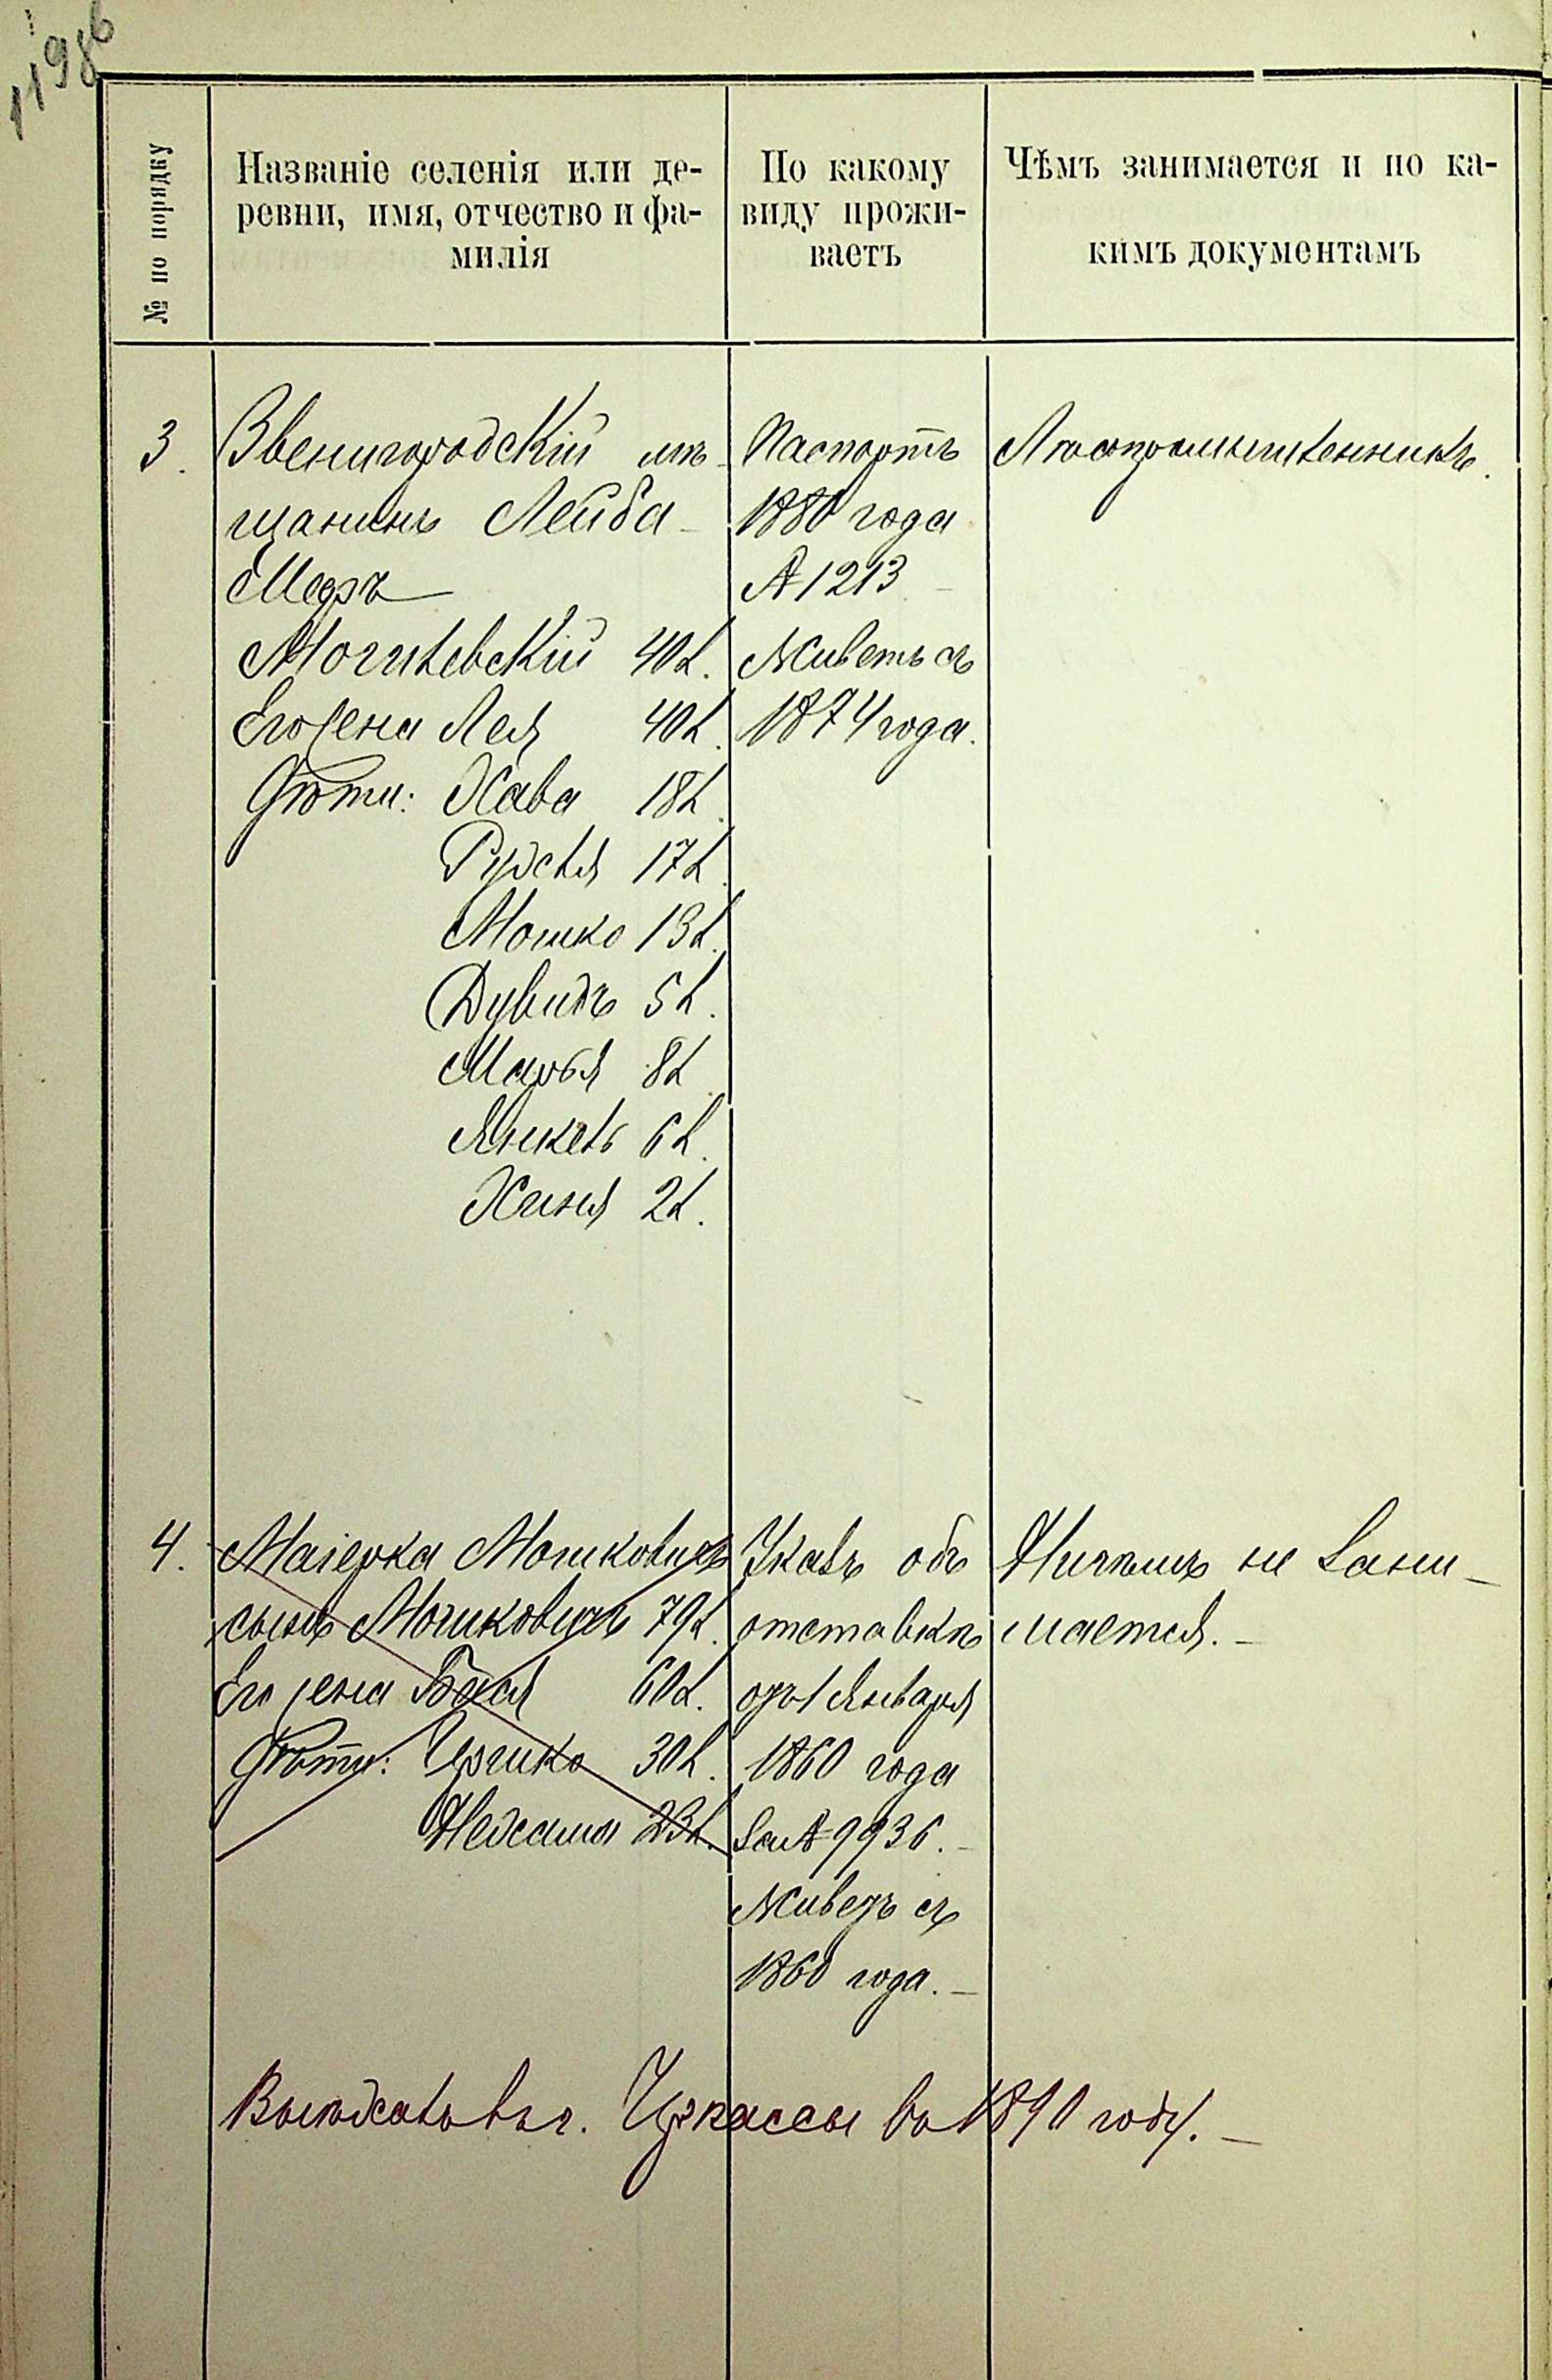 1198б
№ по порядку
Названіе селенія или де-
ревни, имя, отчество и фа-
милія
По какому
виду прожи-
ваетъ
Чѣмъ занимается и по ка-
кимъ документамъ
3.
Звенигородскій мѣ-
щанинъ Лейба -
Меръ
Могилевскій 40 л.
Его жена Лея 40 л.
Дѣти: Хава 18 л.
Рудля 17 л.
Мошко 13 л.
Дувидъ 5 л.
Марья 8 л.
Янкель 6 л.
Хиня 2 л.
Паспортъ
1880 года
№ 1213 -
Живетъ съ
1874 года.
Лѣсопромышленникъ.
4.
Маіерка Мошковичъ
сынъ Мошковичъ 79 л.
Его жена Бася 60 л.
Дѣти: Гершко 30 л.
Нехама 23 л.
Указъ объ
отставкѣ
отъ 1 Января
1860 года
за № 9936. -
Живетъ съ
1860 года. -
Ничѣмъ не зани-
мается. -
Выѣхалъ въ г. Черкассы въ 1890 году. -